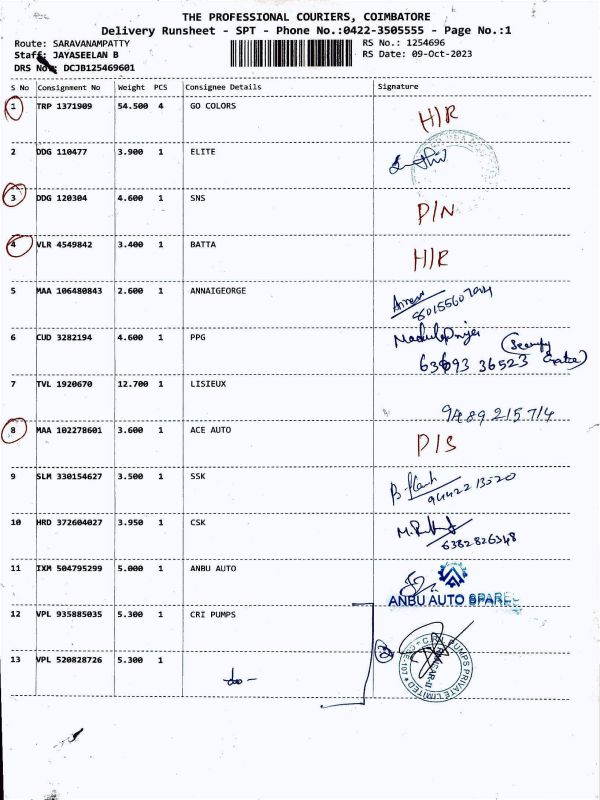 THE PROFESSIONAL COURIERS, COIMBATORE
Delivery Runsheet - SPT - Phone No.:0422-3505555 - Page No.:1
Route: SARAVANAMPATTY RS No.: 1254696
Staff: JAYASEELAN B RS Date: 09-Oct-2023
DRS No.: DCJB125469601
S No Consignment No Weight PCS Consignee Details Signature
1 TRP 1371909 54.500 4 GO COLORS H/R
2 DDG 110477 3.900 1 ELITE
3 DDG 120304 4.600 1 SNS P/N
4 VLR 4549842 3.400 1 BATTA H/R
5 MAA 106480843 2.600 1 ANNAIGEORGE
6 CUD 3282194 4.600 1 PPG
(Security
63693 36523 Gate)
7 TVL 1920670 12.700 1 LISIEUX
9489215714
8 MAA 102278601 3.600 1 ACE AUTO D/S
9 SLM 330154627 3.500 1 SSK
9442213520
10 HRD 372604027 3.950 1 CSK
6382826348
11 IXM 504795299 5.000 1 ANBU AUTO
ANBU AUTO SPARES
12 VPL 935885035 5.300 1 CRI PUMPS
13 VPL 520828726 5.300 1
-do-
PUMPS PRIVATE LIMITED